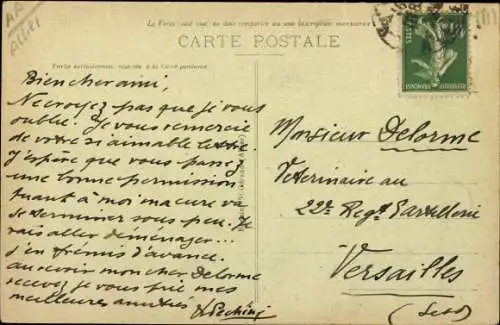 AA
Allier
Le Verso (sauf vue) ne doit comporter aucune inscription manuscrite
CARTE POSTALE
Partie exclusivement réservée à la Correspondance
Bien cher ami,
Ne croyez pas que je vous
oublie. Je vous remercie
de votre si aimable lettre.
J'espère que vous passez
une bonne permission
tuant à moi ma cure va
se terminer sous peu. Je
vais aller déménager...
J'en frémis d'avance.
au revoir mon cher Delorme
recevez je vous prie mes
meilleures amitiés
Monsieur Delorme
Vétérinaire au
22e Regt d'artillerie
Versailles
(S et O)